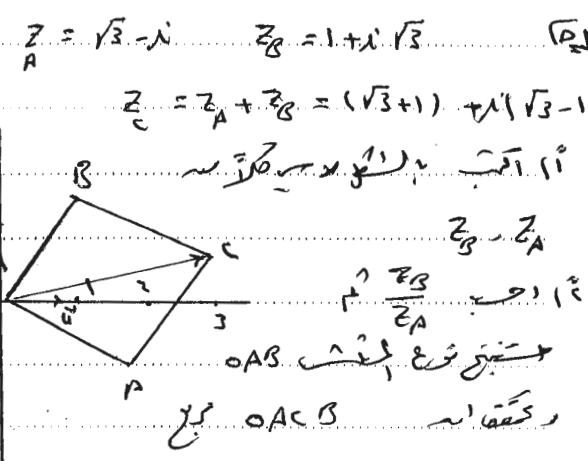 Z_A = √3 - i   Z_B = 1 + i √3
Z_C = Z_A + Z_B = (√3 + 1) + i(√3 - 1
1) اكتب بالشكل الأسي كلاً من
Z_B , Z_A
2) احسب Z_B / Z_A ثم
استنتج نوع المثلث OAB
وتحقق أن OACB مربع
B
C
1 2 3
A